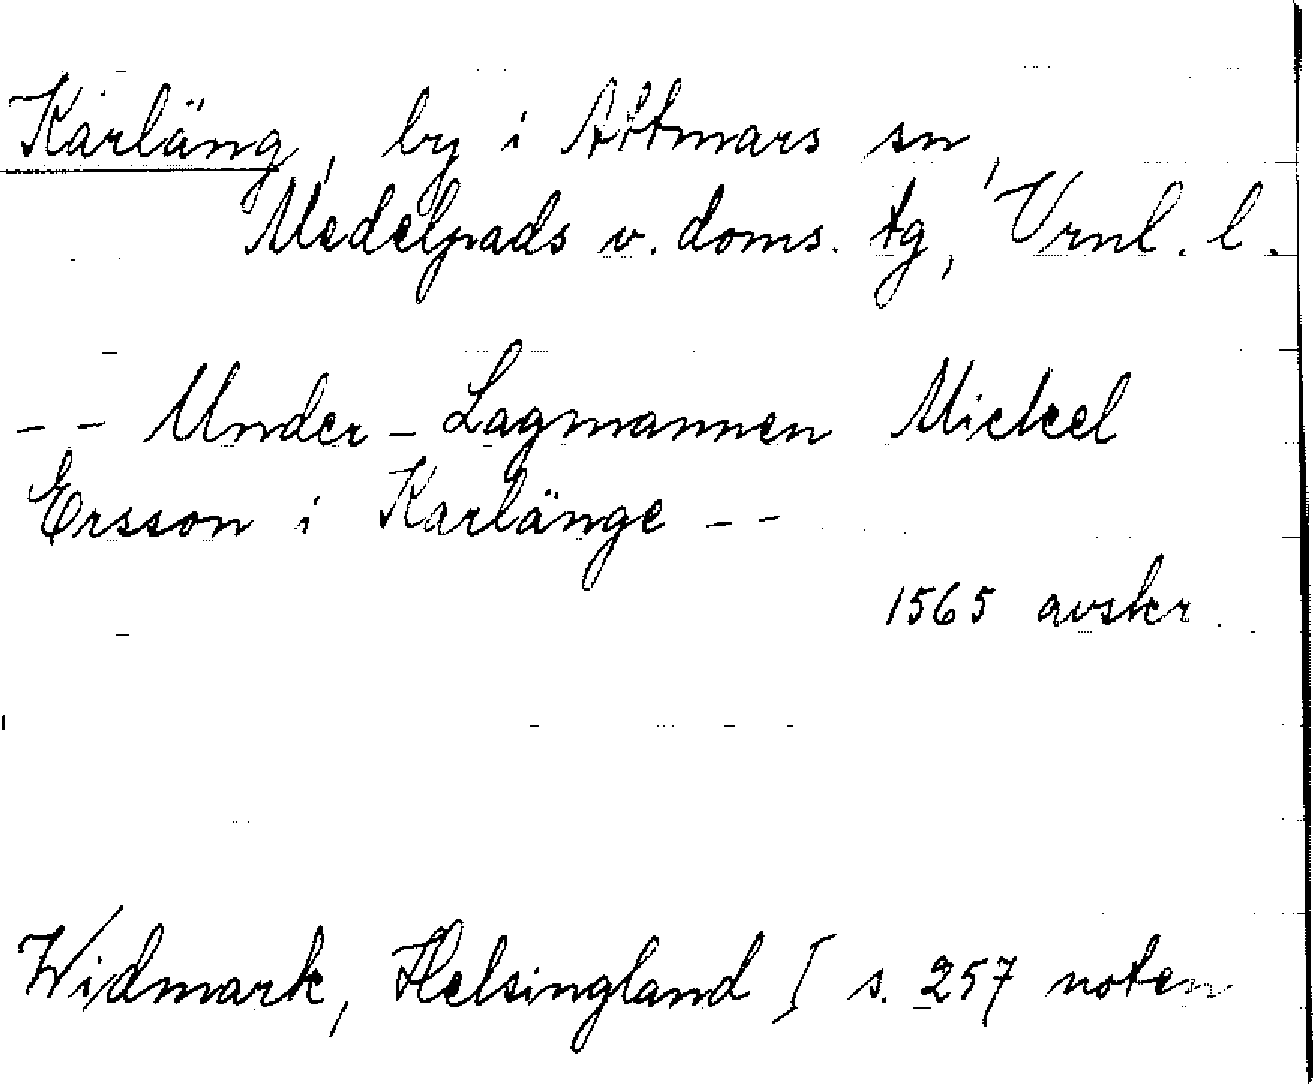 Karläng, by i Attmars sn,
Medelpads v. doms. tg, Vrnl. l.
-- Under-Lagmannen Mickel
Ersson i Karlänge --
1565 avskr.
Widmark, Helsingland I s. 257 noten